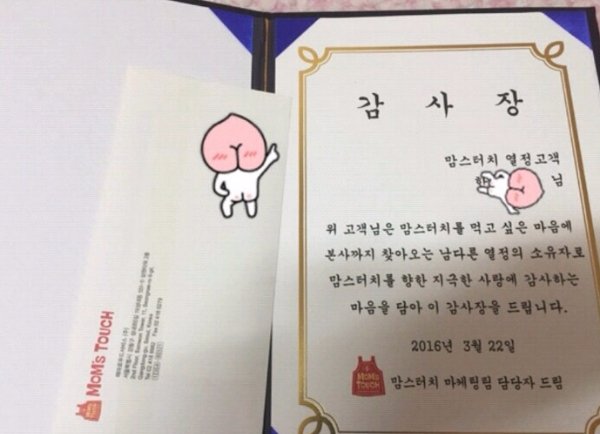 감사장
맘스터치 열정고객
한 님
위 고객님은 맘스터치를 먹고 싶은 마음에
본사까지 찾아오는 남다른 열정의 소유자로
맘스터치를 향한 지극한 사랑에 감사하는
마음을 담아 이 감사장을 드립니다.
2016년 3월 22일
MOM'S TOUCH
맘스터치 마케팅팀 담당자 드림
MOM'S TOUCH
해마로푸드서비스 (주)